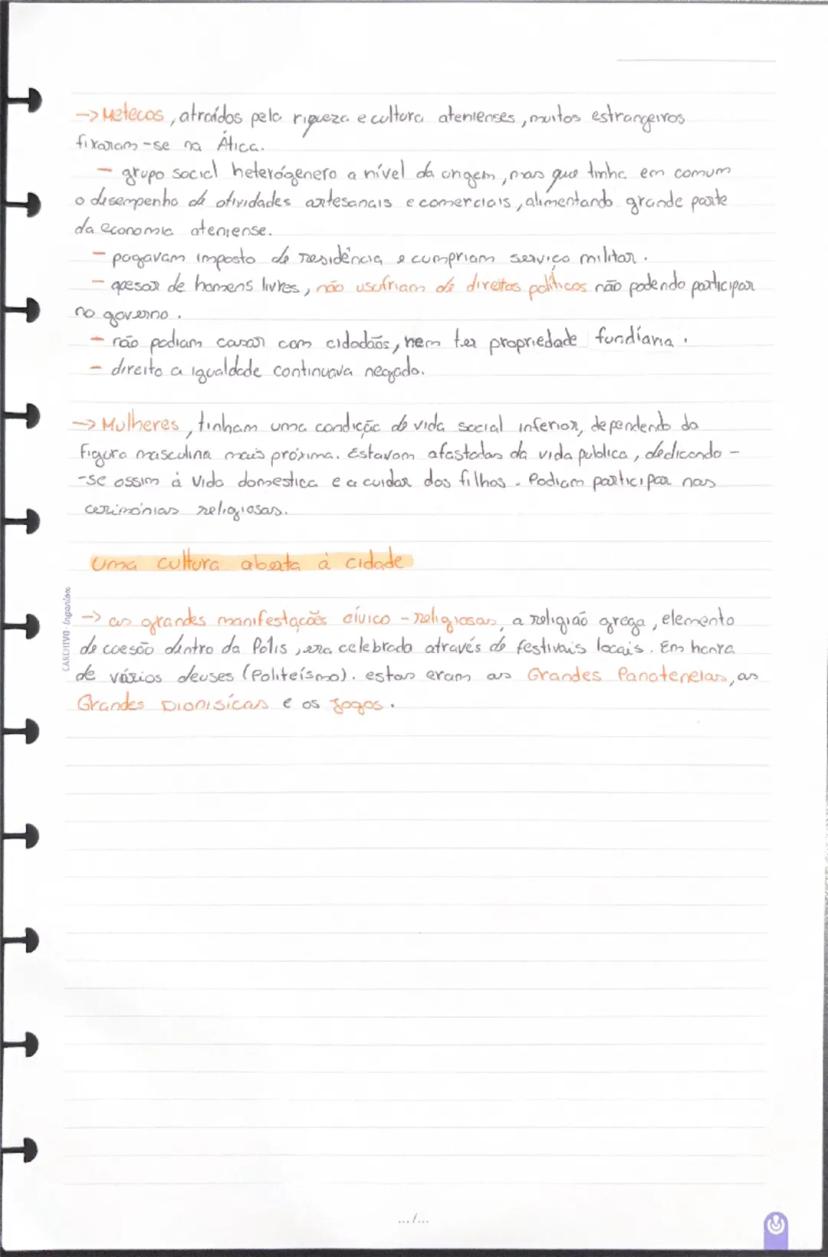 → Metecos, atraídos pela riqueza e cultura atenienses, muitos estrangeiros
fixaram-se na Ática.
– grupo social heterógenero a nível da origem, mas que tinha em comum
o desempenho de atividades artesanais e comerciais, alimentando grande parte
da economia ateniense.
– pagavam imposto de residência e cumpriam serviço militar.
– apesar de homens livres, não usufriam de direitos políticos não podendo participar
no governo.
– não podiam casar com cidadãos, nem ter propriedade fundíaria.
– direito a igualdade continuava negado.
→ Mulheres, tinham uma condição de vida social inferior, dependendo da
figura masculina mais próxima. Estavam afastadas da vida publica, dedicando-
-se assim à vida domestica e a cuidar dos filhos. Podiam participar nas
cerimónias religiosas.
Uma cultura aberta à cidade
→ as grandes manifestações cívico-religiosas, a religião grega, elemento
de coesão dentro da Pólis, era celebrada através de festivais locais. Em honra
de vários deuses (Politeísmo). estas eram as Grandes Panateneias, as
Grandes Dionisícas e os Jogos.
CARCHIVO·Ingeniox
.../...